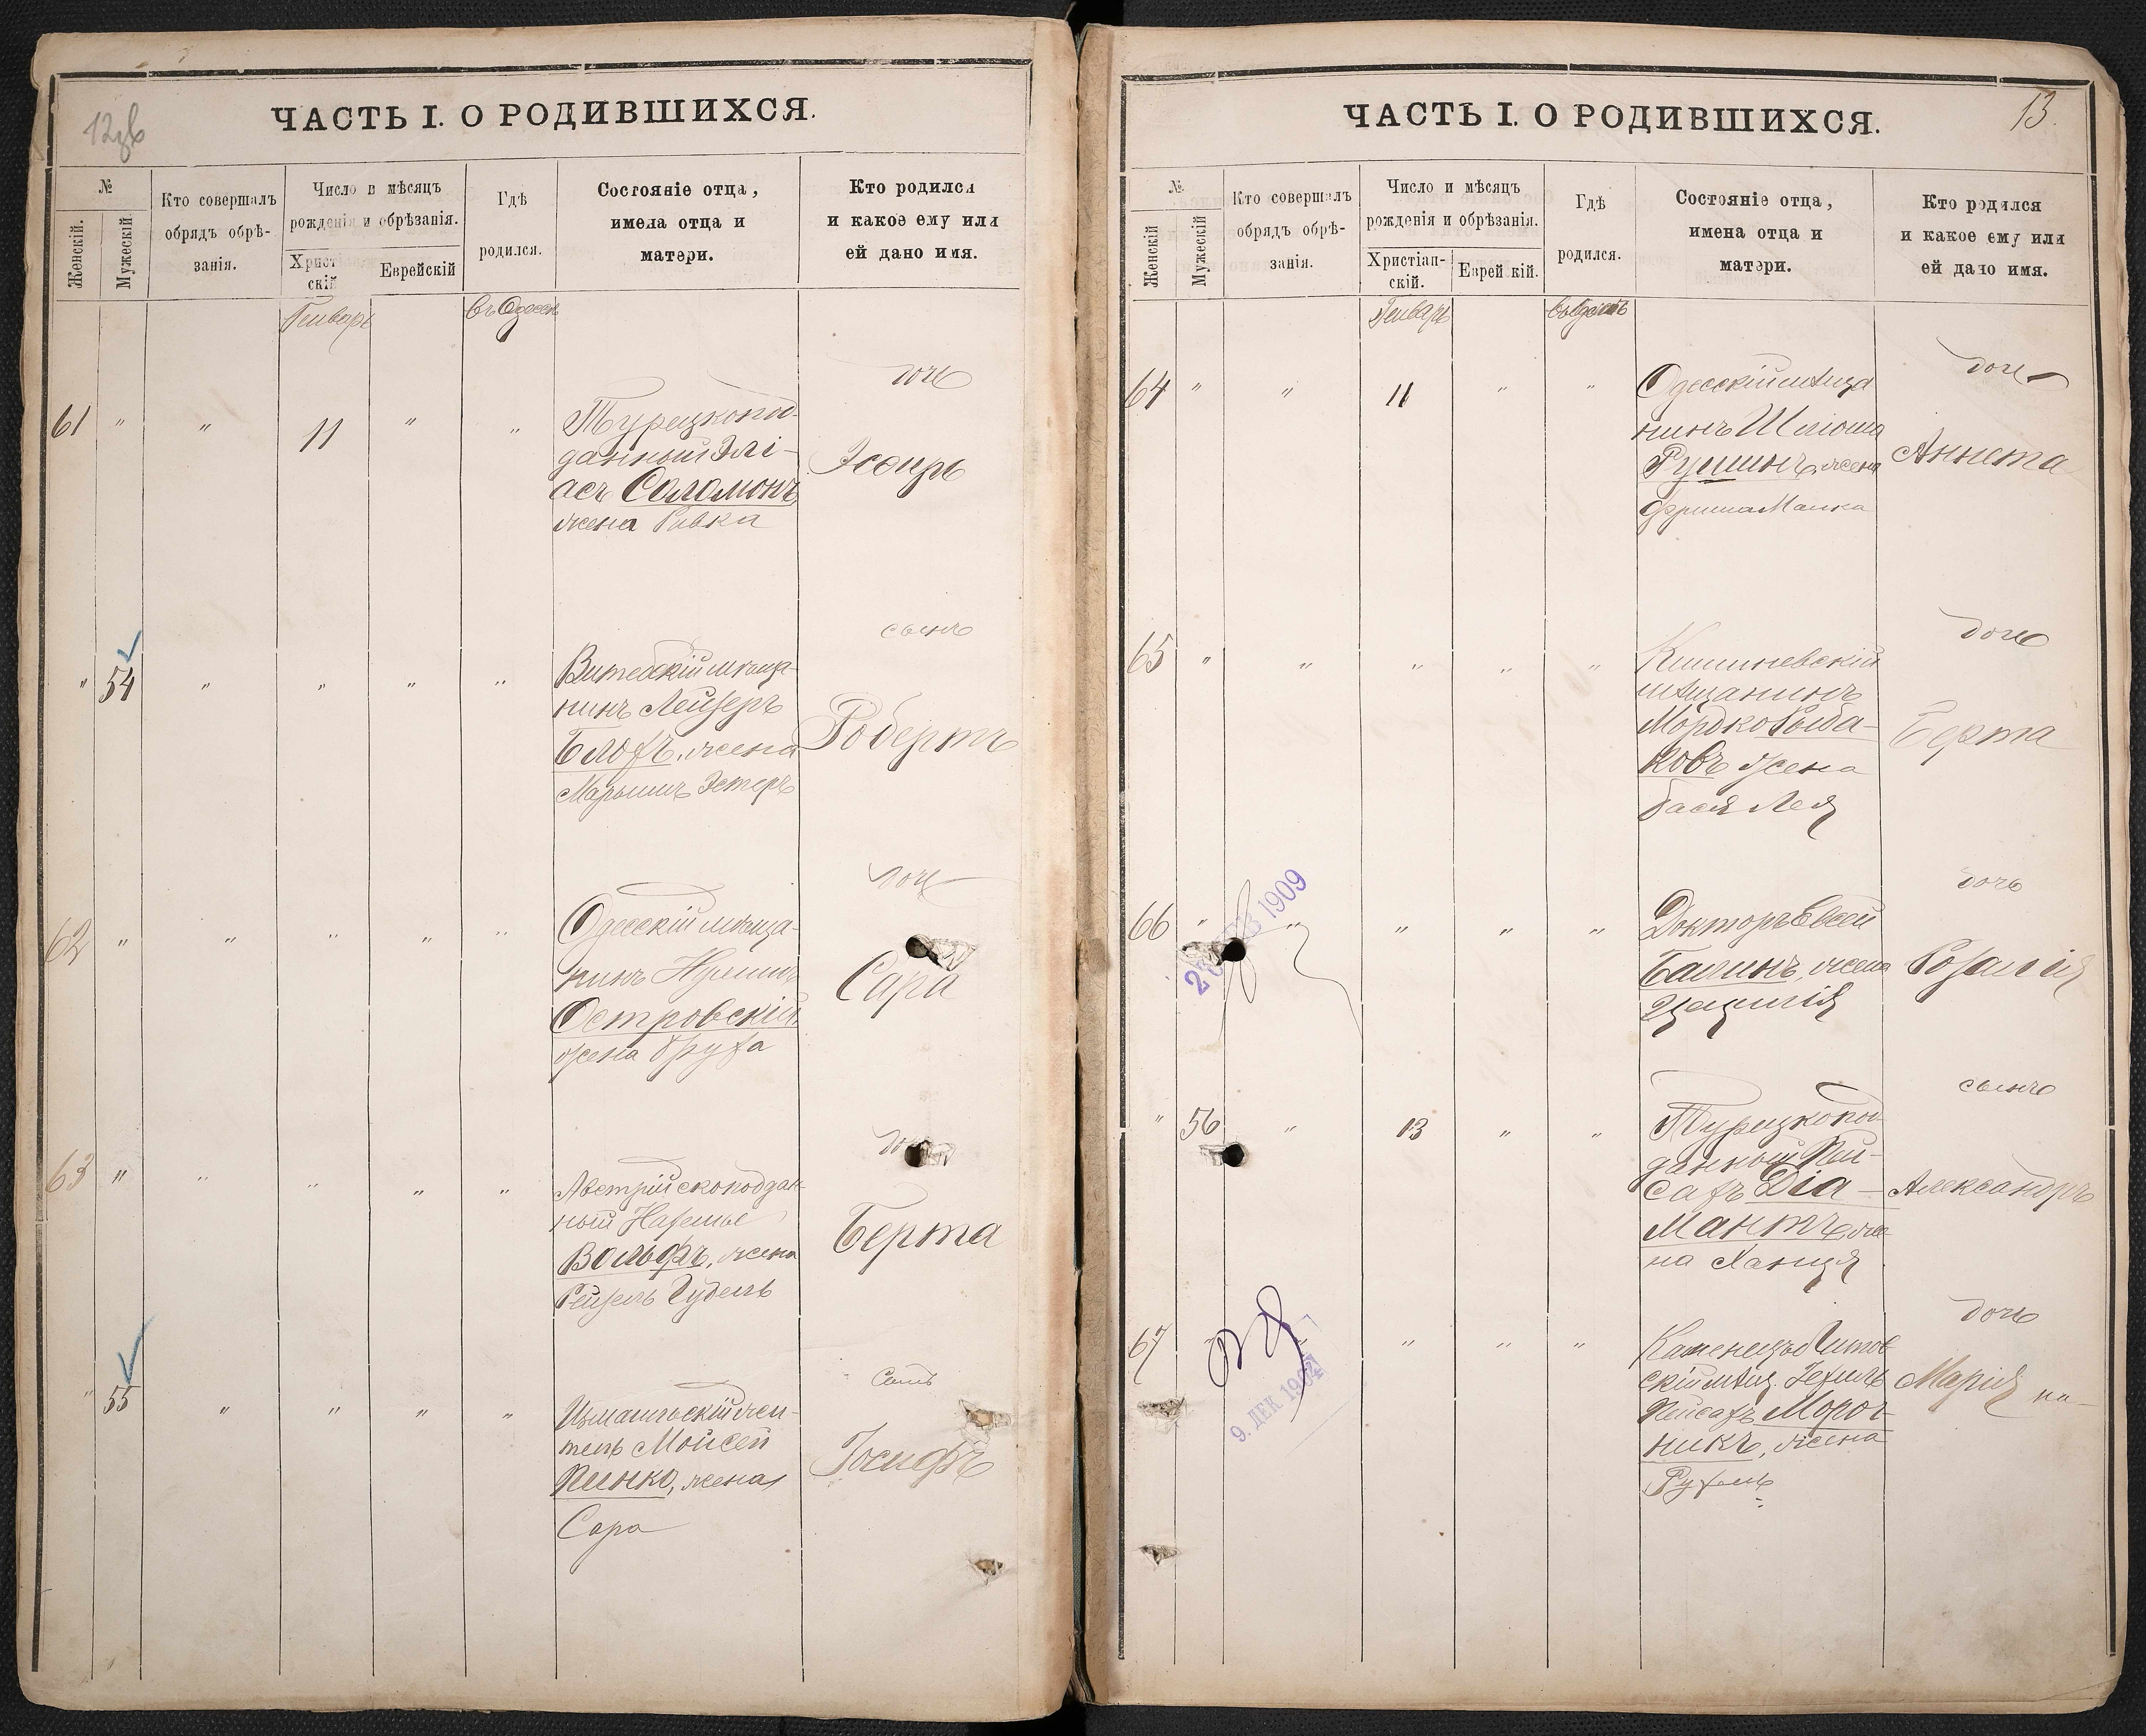 12об
ЧАСТЬ I. О РОДИВШИХСЯ.
№
Женскій.
Мужескій
Кто совершалъ
обрядъ обрѣ-
занія.
Число и мѣсяцъ
рожденія и обрѣзанія.
Христіан-
скій
Еврейскій
Гдѣ
родился.
Состояніе отца,
имена отца и
матери.
Кто родился
и какое ему или
ей дано имя.
Генварь
Въ Одессѣ
61 " " 11 " "
дочь
Турецкопод-
данный Элі-
асъ Соломонъ
жена Ривка
Эсѳирь
" 54 " " " "
сынъ
Витебскій мѣща-
нинъ Лейзеръ
Блохъ, жена
Эстеръ
Робертъ
62 " " " " "
дочь
Одесскій мѣща-
нинъ
Островскій
жена Фруза
Сара
63 " " " " "
дочь
Австрійскоподдан-
ный
Вольфъ, жена
Рейзель Гудель
Берта
" 55 " " " "
сынъ
Измаильскій жи-
тель Мойсей
Пинко, жена
Сара
Іосифъ
13.
ЧАСТЬ I. О РОДИВШИХСЯ.
№
Женскій
Мужескій
Кто совершалъ
обрядъ обрѣ-
занія.
Число и мѣсяцъ
рожденія и обрѣзанія.
Христіан-
скій.
Еврейскій.
Гдѣ
родился.
Состояніе отца,
имена отца и
матери.
Кто родился
и какое ему или
ей дано имя.
Генварь
Въ Одессѣ
64 " " 11 " "
дочь
Одесскій мѣща
нинъ Шлiома
жена
Фрима Малка
Аннета
65 " " " " "
дочь
Кишиневскій
мѣщанинъ
Мордко Рыба-
ковъ жена
Бася Лея
Берта
66 " " " " "
1909
дочь
Докторъ Евсей
Балинъ, жена
Цецилія
Розалія
" 56 " 13 " "
сынъ
Турецкопод
данный Пей-
сахъ Діа-
мантъ, же
на Ханця
Александръ
67 " " " "
9. ДЕК 190
дочь
Каменецъ Литов
скій мѣщ. Іехиль
Пейсахъ Морог-
никъ, жена
Рухель
Марія